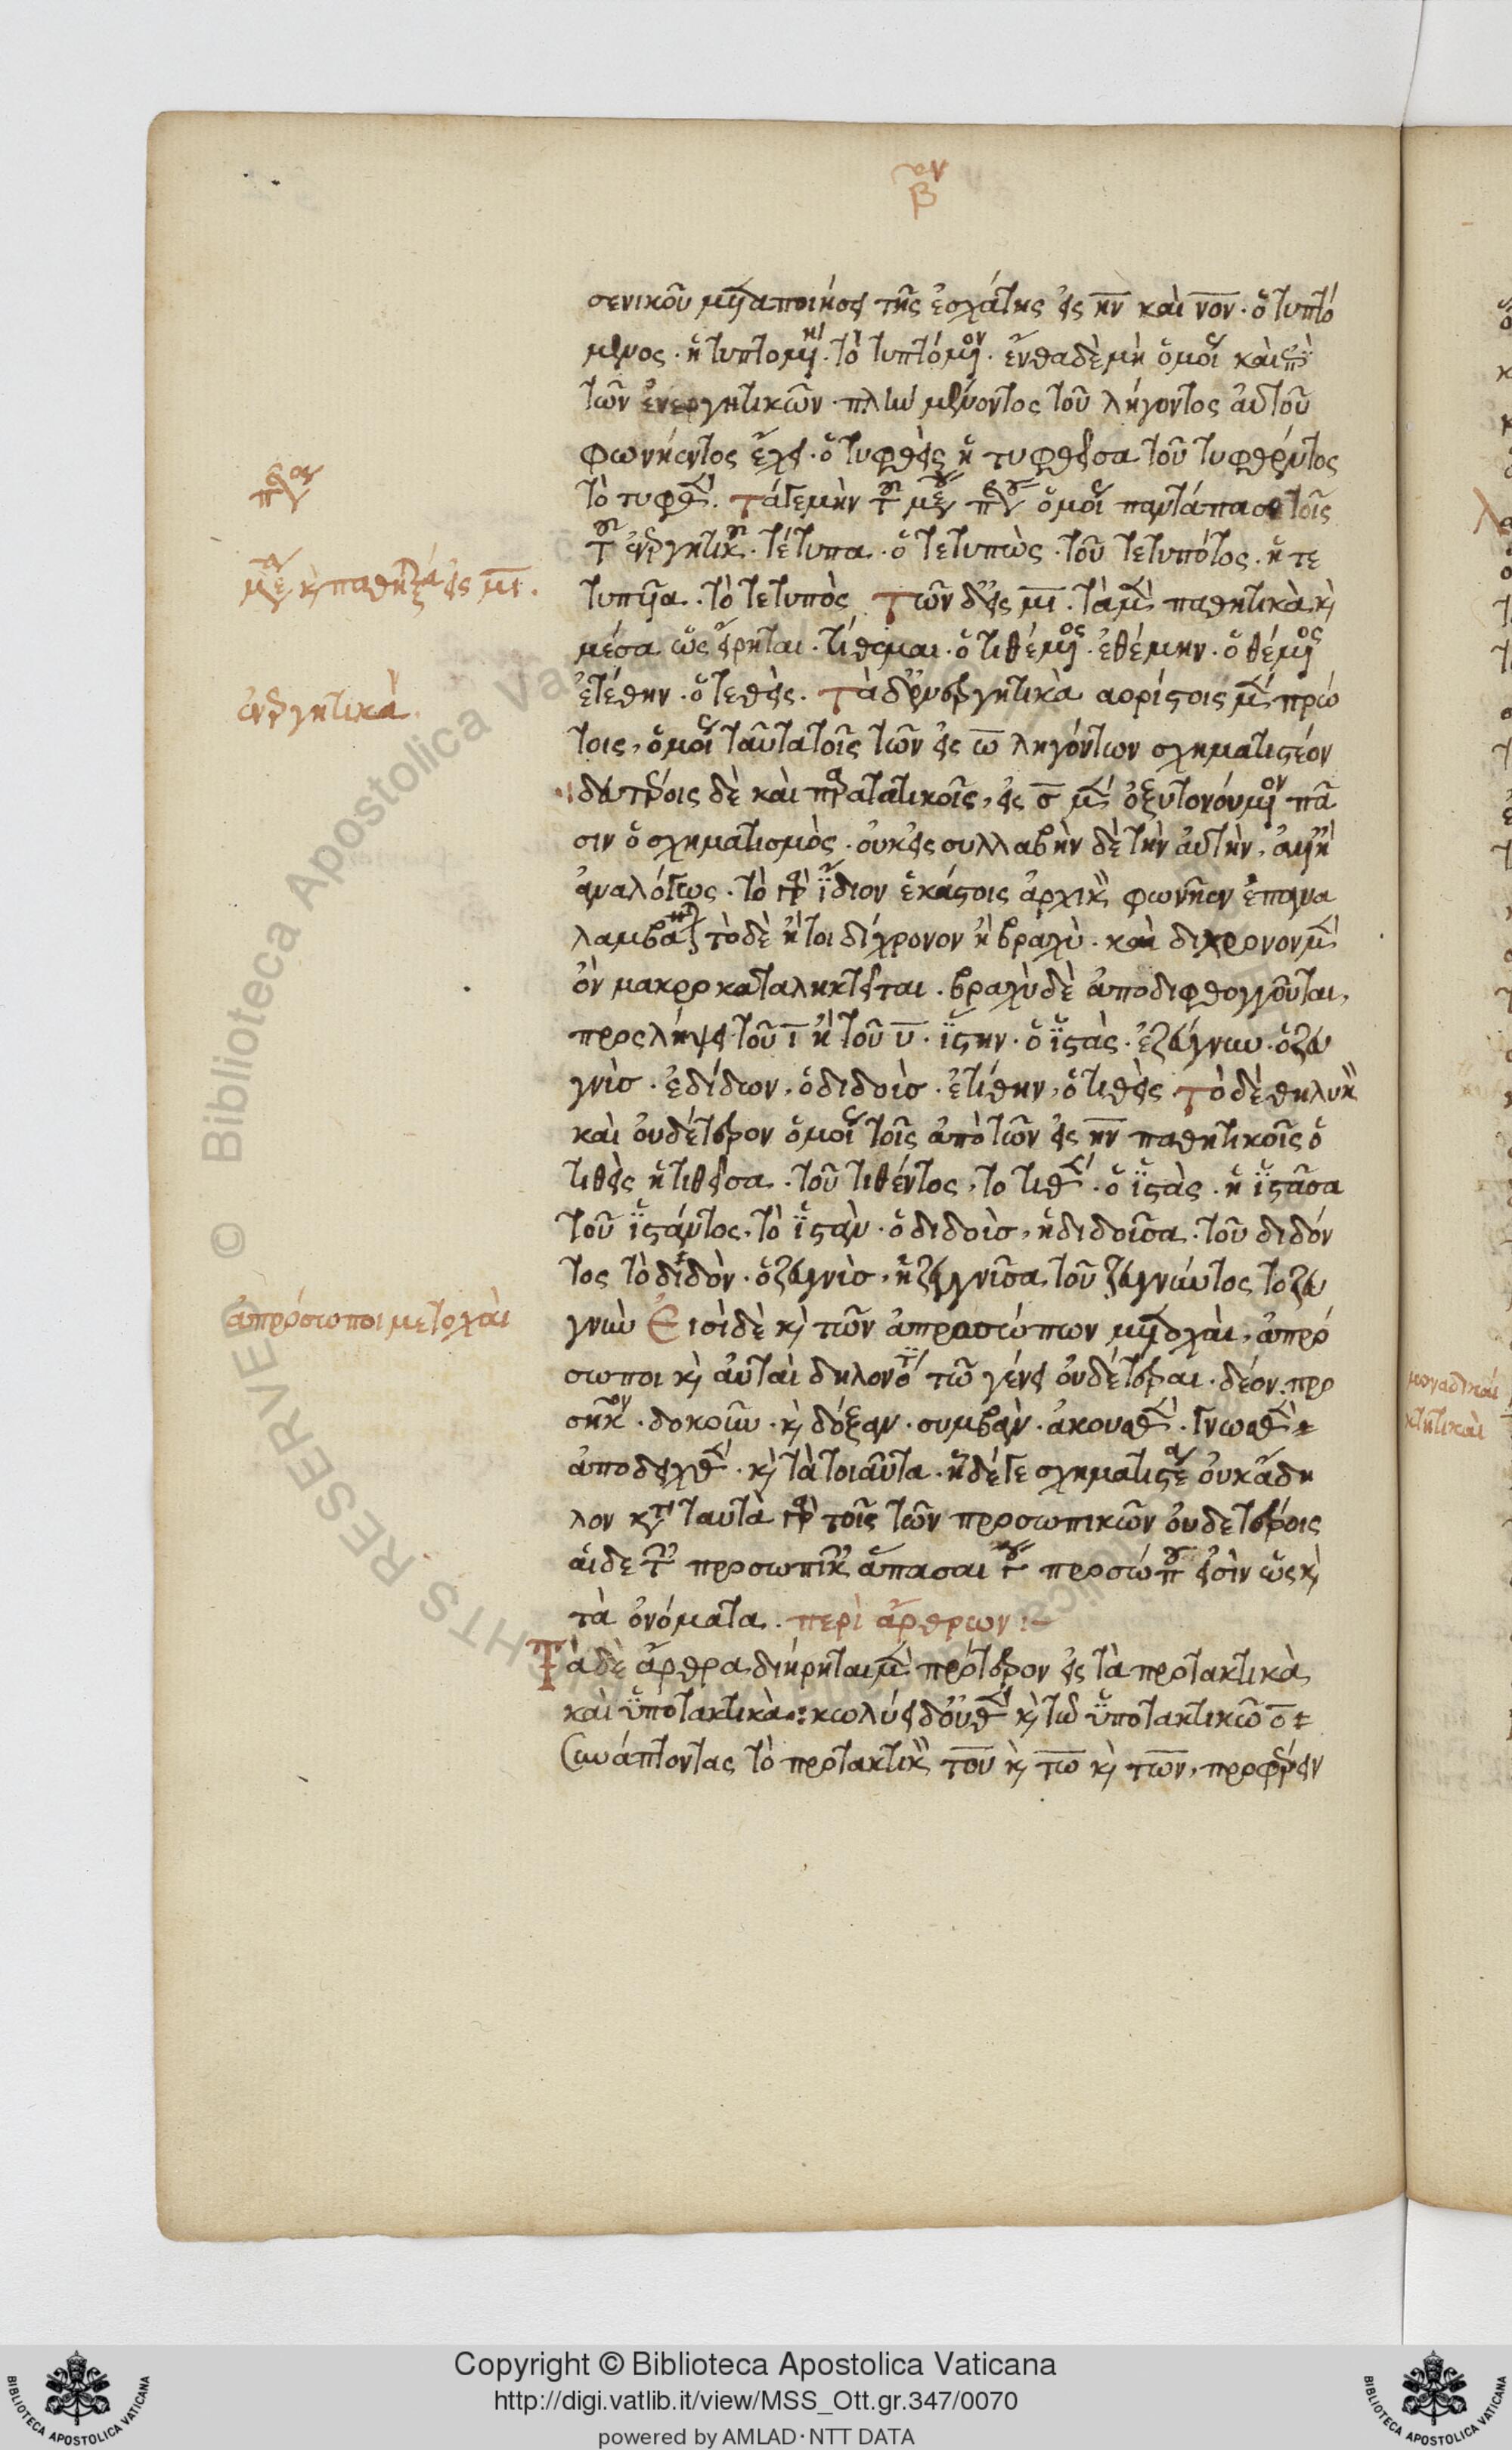 β
σενικοῦ μεταποιήσει τῆς ἐσχάτης εἰς ην καὶ νον· ὁ τυπτό
μενος· ἡ τυπτομένη· τὸ τυπτόμενον· ἔνθα δὲ μὴ ὁμοίως καὶ ἐπὶ
τῶν ἐνεργητικῶν· πλὴν μένοντος τοῦ λήγοντος αὐτοῦ
φωνήεντος ἔχει· ὁ τυφθεὶς ἡ τυφθεῖσα τοῦ τυφθέντος
τὸ τυφθέν. τά γε μὴν τοῦ μέσου ὁμοίως παντάπασι τοῖς
τῶν ἐνεργητικῶν· τέτυπα· ὁ τετυπὼς· τοῦ τετυπότος· ἡ τε
τυπῖα· τὸ τετυπὸς τῶν δ' εἰς μι· τὰ μὲν παθητικὰ καὶ
μέσα ὡς εἴρηται· τίθεμαι· ὁ τιθέμενος· ἐθέμην· ὁ θέμενος
ἐτέθην· ὁ τεθεὶς. τὰ δ' ἐνεργητικὰ αορίστοις μὲν πρώ
τοις, ὁμοίως ταῦτα τοῖς τῶν εἰς ω ληγόντων σχηματιστέον
δευτέροις δὲ καὶ παρατατικοῖς, εἰς σ μὲν ὀξυτονούμενον πᾶ
σιν ὁ σχηματισμὸς· οὐκ εἰς συλλαβὴν δὲ τὴν αὐτὴν,
ἀναλόγως· τὸ γὰρ ἴδιον ἑκάστοις ἀρχικὸν φωνῆεν ἐπανα
λαμβα τὸ δὲ ἤτοι δίχρονον ἢ βραχὺ· καὶ διχρονον μὲν
ὂν μακροκαταληκτεῖται· βραχὺ δὲ ἀποδιφθογγοῦται,
προςλήψει τοῦ ι ἢ τοῦ υ· ἵστην· ὁ ἱστὰς· ἐζεύγνυν· ὁ ζευ
γνὺσ· ἐδίδων, ὁ διδοὺσ· ἐτίθην, ὁ τιθεὶς τὸ δὲ θηλυκὸν
καὶ οὐδέτερον ὁμοίως τοῖς ἀπὸ τῶν εἰς ην παθητικοῖς ὁ
τιθεὶς ἡ τιθεῖσα· τοῦ τιθέντος, το τιθέν· ὁ ἱστὰς· ἡ ἱστᾶσα
τοῦ ἱστάντος, τὸ ἱστὰν· ὁ διδοὺσ, ἡ διδοῦσα· τοῦ διδόν
τος τὸ διδὸν· ὁ ζευγνὺσ, ἡ ζευγνῦσα, τοῦ ζευγνύντος το ζευ
γνὺν Εἰσὶ δὲ καὶ τῶν ἀπροσώπων μετοχαὶ, ἀπρό
σωποι καὶ αὐταὶ δηλονότι τῶ γένει οὐδέτεραι· δέον· προ
σῆκον· δοκοῦν· καὶ δόξαν· συμβὰν· ἀκουσθὲν· γνωσθὲν
ἀποδειχθὲν· καὶ τὰ τοιαῦτα· ἡ δέ γε σχηματισ οὐκ ἄδη
λον κατὰ ταυτὰ γὰρ τοῖς τῶν προσωπικῶν οὐδετέροις
αἱ δε τῶν προσωπικῶν ἅπασαι τρίτου προσώπου εἰσὶν ὡς καὶ
τὰ ὀνόματα. περὶ ἄρθρων:-
Τὰ δὲ ἄρθρα διήρηται μὲν πρότερον εἰς τὰ προτακτικὰ
καὶ ὑποτακτικὰ: κωλύει δ' οὐθὲν καὶ τῶ ὑποτακτικῶ ο
συνάπτοντας τὸ προτακτικὸν του καὶ τω καὶ των, προφέρειν
μέσα καὶ παθητικά εἰς μι.
ἐνεργητικὰ
ἀπρόσωποι μετοχαὶ
μοναδικαὶ
κτητικαὶ
© Biblioteca Apostolica Vaticana
Copyright © Biblioteca Apostolica Vaticana
http://digi.vatlib.it/view/MSS_Ott.gr.347/0070
powered by AMLAD·NTT DATA
BIBLIOTECA APOSTOLICA VATICANA
BIBLIOTECA APOSTOLICA VATICANA